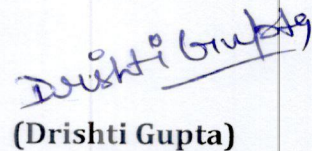 Drishti Gupta
(Drishti Gupta)